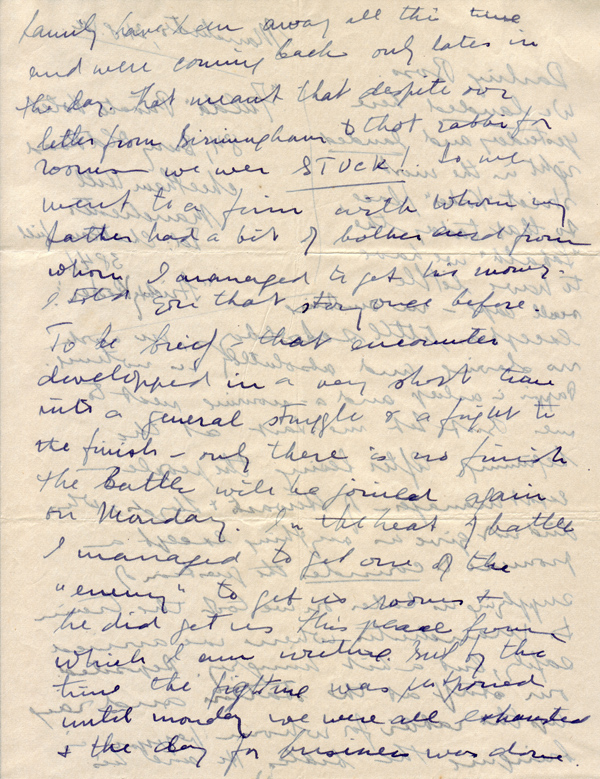 family have been away all this time
and were coming back only late in
the day. That meant that despite our
letter from Birmingham to that rabbi for
rooms we were STUCK! So we
went to a firm with whom my
father had a bit of bother and from
whom I managed to get his money.
I told you that story once before.
To be brief - that encounter
developped in a very short time
into a general struggle & a fight to
the finish - only there is no finish
the battle will be joined again
on Monday. In the heat of battle
I managed to get one of the
"enemy" to get us rooms &
he did get us this place from
which I am writing. But by the
time the fighting was postponed
until monday we were all exhausted
& the day for business was done.